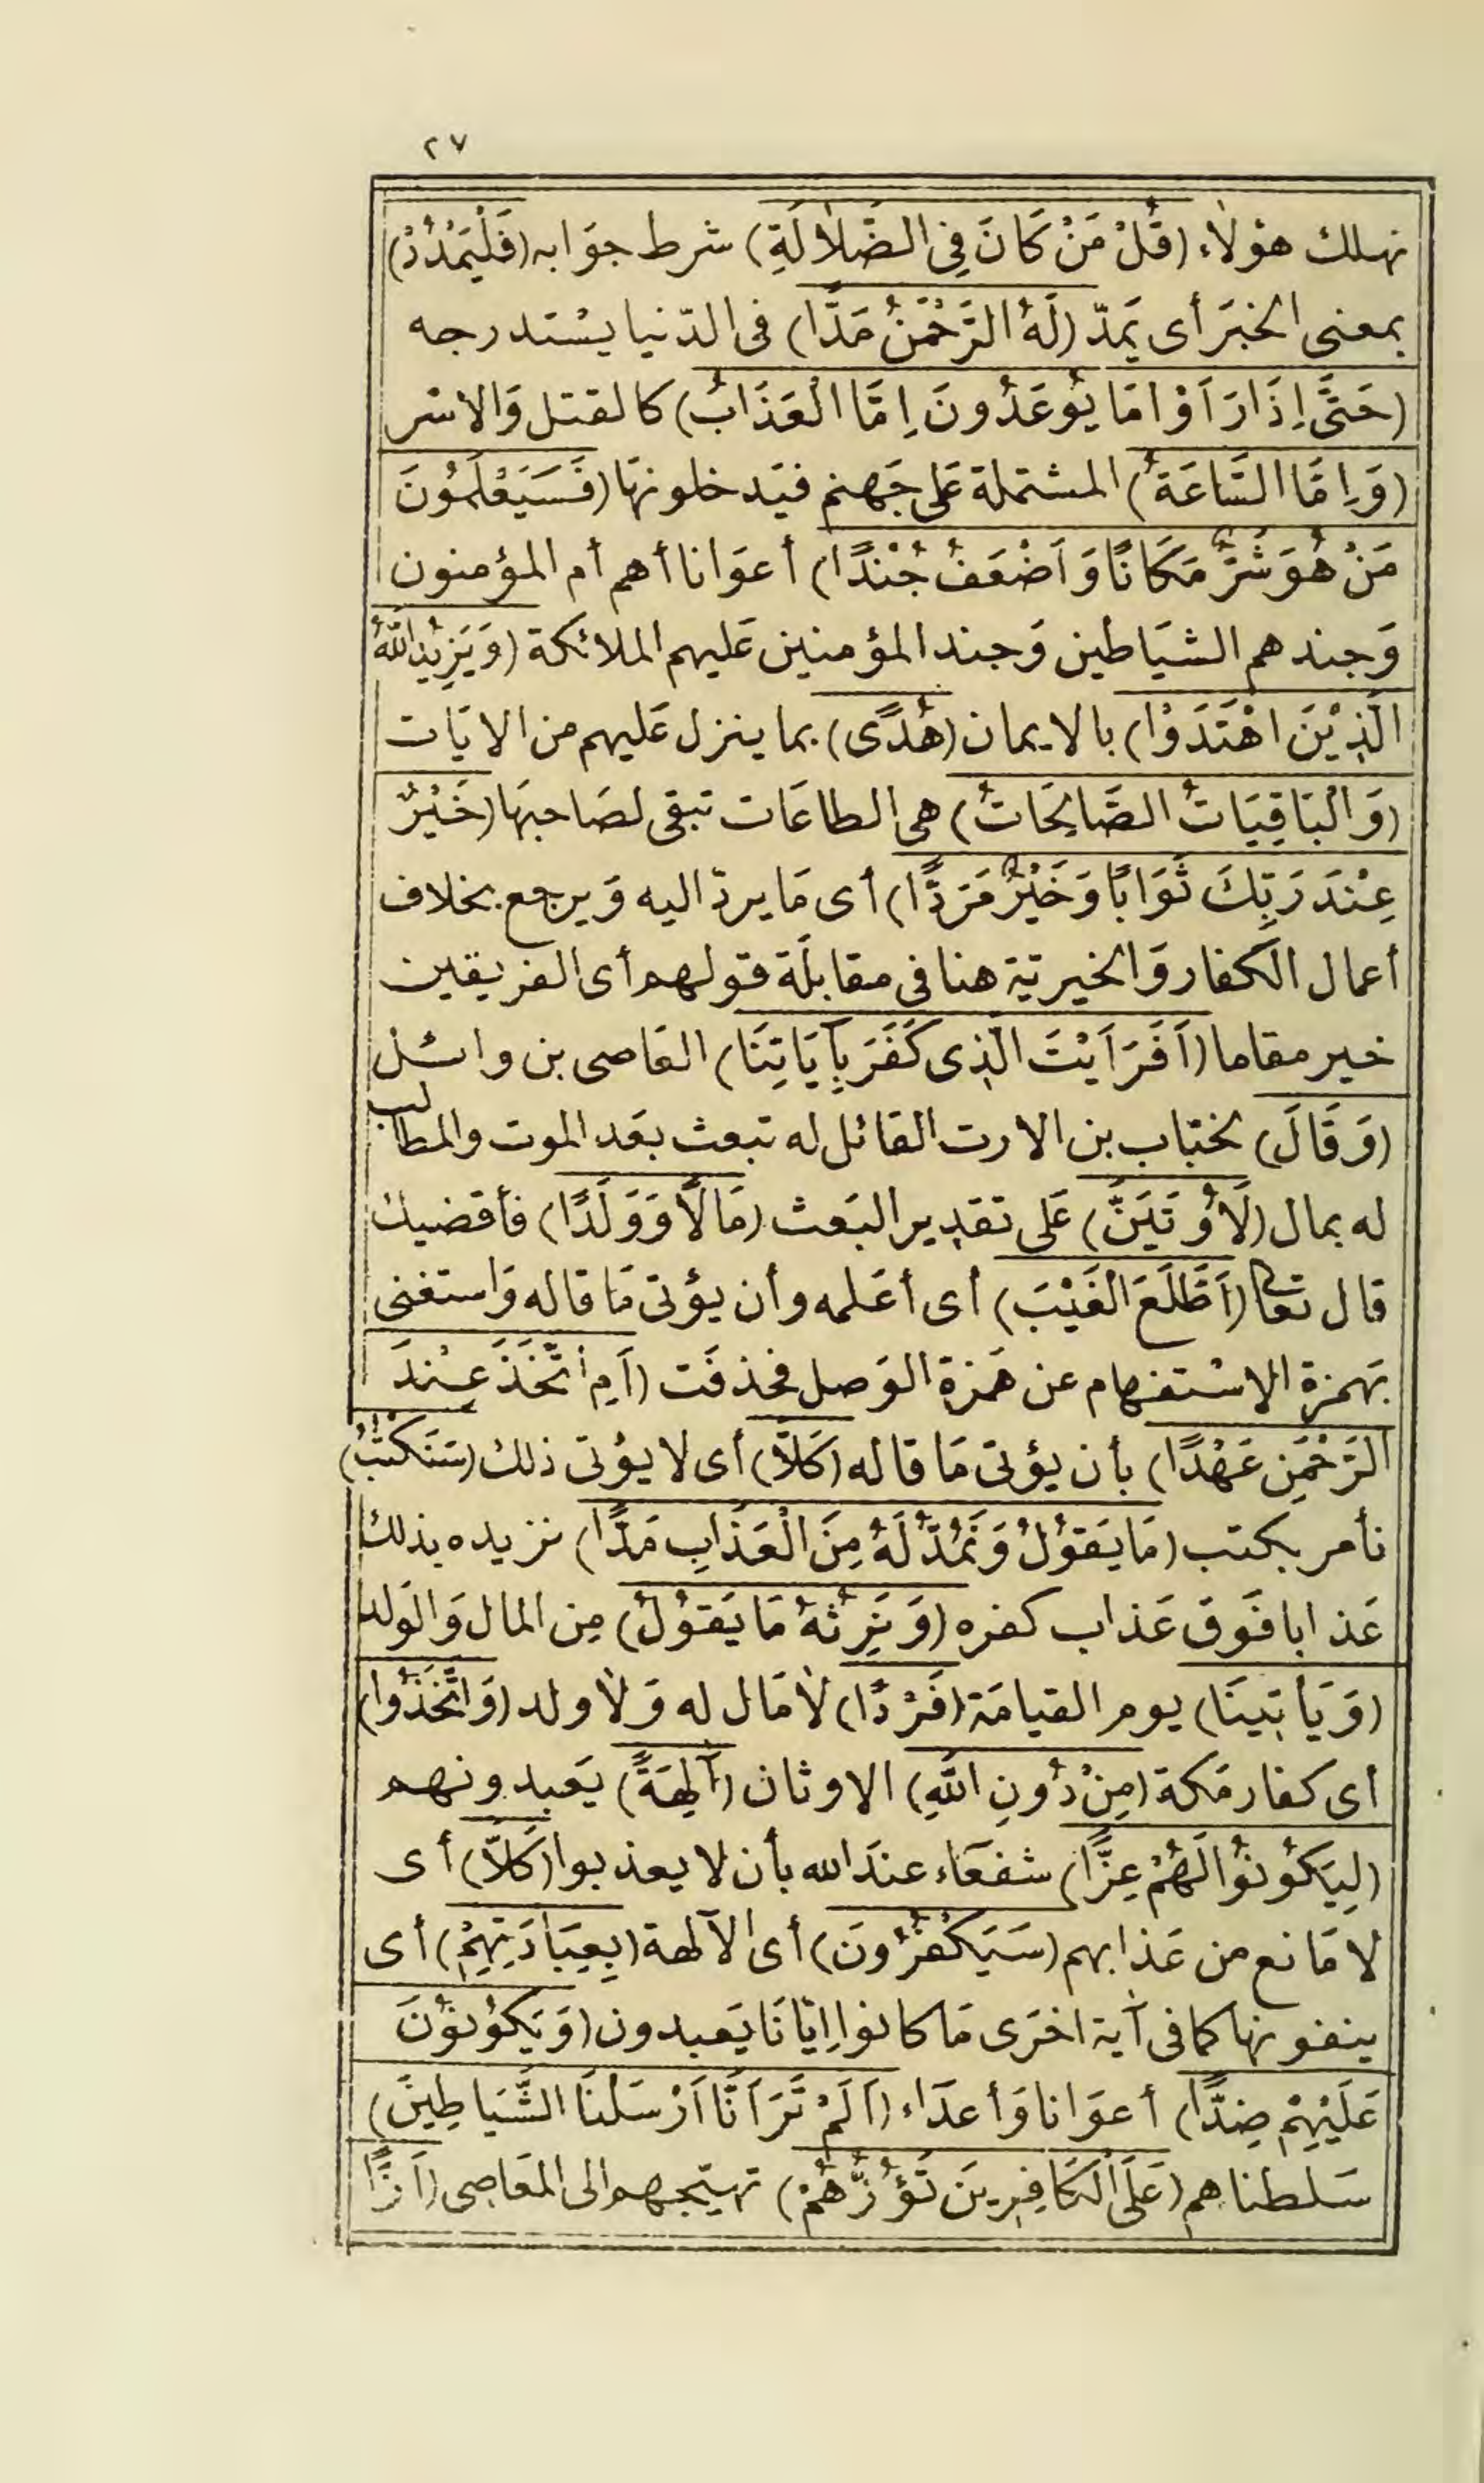 ٢٧
نهلك هؤلاء (قُلْ مَنْ كَانَ فِى الضَّلَالَةِ) شرط جوَابه (فَلْيَمْدُدْ)
بمعنى الخبَر أى يَمدّ (لَهُ الرَّحْمَنُ مَدًّا) فى الدّنيا يسْتدرجه
(حَتَّى اِذَا رَاَوْا مَا يُوعَدُونَ اِمَّا الْعَذَابُ) كالقتل وَالاسْر
(وَاِمَّا السَّاعَةُ) المشتملة عَلى جَهنم فيَدخلونهَا (فَسَيَعْلَمُونَ
مَنْ هُوَ شَرٌّ مَكَانًا وَاَضْعَفُ جُنْدًا) أعوَانا أهم أم المؤمنون
وَجندهم الشيَاطين وَجند المؤمنين عَليهم الملائكة (وَيَزِيدُ اللّهُ
الَّذِيْنَ اهْتَدَوْا) بالايمان (هُدًى) بما ينزل عَليهم من الايَات
(وَالْبَاقِيَاتُ الصَّالِحَاتُ) هى الطاعَات تبقى لصَاحبهَا (خَيْرٌ
عِنْدَ رَبِّكَ ثَوَابًا وَخَيْرٌ مَرَدًّا) أى مَا يردّ اليه وَيرجع بخلاف
أعمال الكفار وَالخيريّة هنا فى مقابلَة قولهم أى الفريقين
خير مقاما (اَفَرَاَيْتَ الَّذِى كَفَرَ بِآيَاتِنَا) العَاصى بن وائل
(وَقَالَ) لخبّاب بن الارت القائل له تبعث بعَد الموت والمطالب
له بمال (لَأُوتَيَنَّ) عَلى تقدير البَعث (مَالًا وَوَلَدًا) فأقضيك
قال تعالى (اَطَّلَعَ الْغَيْبَ) أى أعَلمه وأن يؤتى مَا قاله وَاستغنى
بَهمزة الاسْتفهام عن هَمزة الوَصل فحذفَت (اَمِ اتَّخَذَ عِنْدَ
الرَّحْمَنِ عَهْدًا) بأن يؤتى مَا قاله (كَلَّا) أى لا يؤتى ذلك (سَنَكْتُبُ)
نأمر بكتب (مَا يَقُوْلُ وَنَمُدُّ لَهُ مِنَ الْعَذَابِ مَدًّا) نزيده بذلك
عَذابا فَوق عَذاب كفره (وَنَرِثُهُ مَا يَقُوْلُ) مِن المال وَالوَلد
(وَيَأْتِينَا) يوم القيامَة (فَرْدًا) لَا مَال له وَلَا ولد (وَاتَّخَذُوا)
أى كفار مَكة (مِنْ دُونِ اللّهِ) الاوثان (آلِهَةً) يَعبدونهم
(لِيَكُوْنُوْا لَهُمْ عِزًّا) شفعَاء عندَ الله بأن لا يعذبوا (كَلَّا) أى
لا مَانع من عَذابهم (سَيَكْفُرُونَ) أى الآلهة (بِعِبَادَتِهِمْ) أى
ينفونها كما فى آية اخرَى مَا كانوا ايّانَا يَعبدون (وَيَكُوْنُوْنَ
عَلَيْهِمْ ضِدًّا) أعوَانا وَأعدَاء (اَلَمْ تَرَ اَنَّا اَرْسَلْنَا الشَّيَاطِينَ)
سَلطناهم (عَلَى الْكَافِرِينَ تَؤُزُّهُمْ) تهيّجهم الى المعَاصِى (اَزًّا